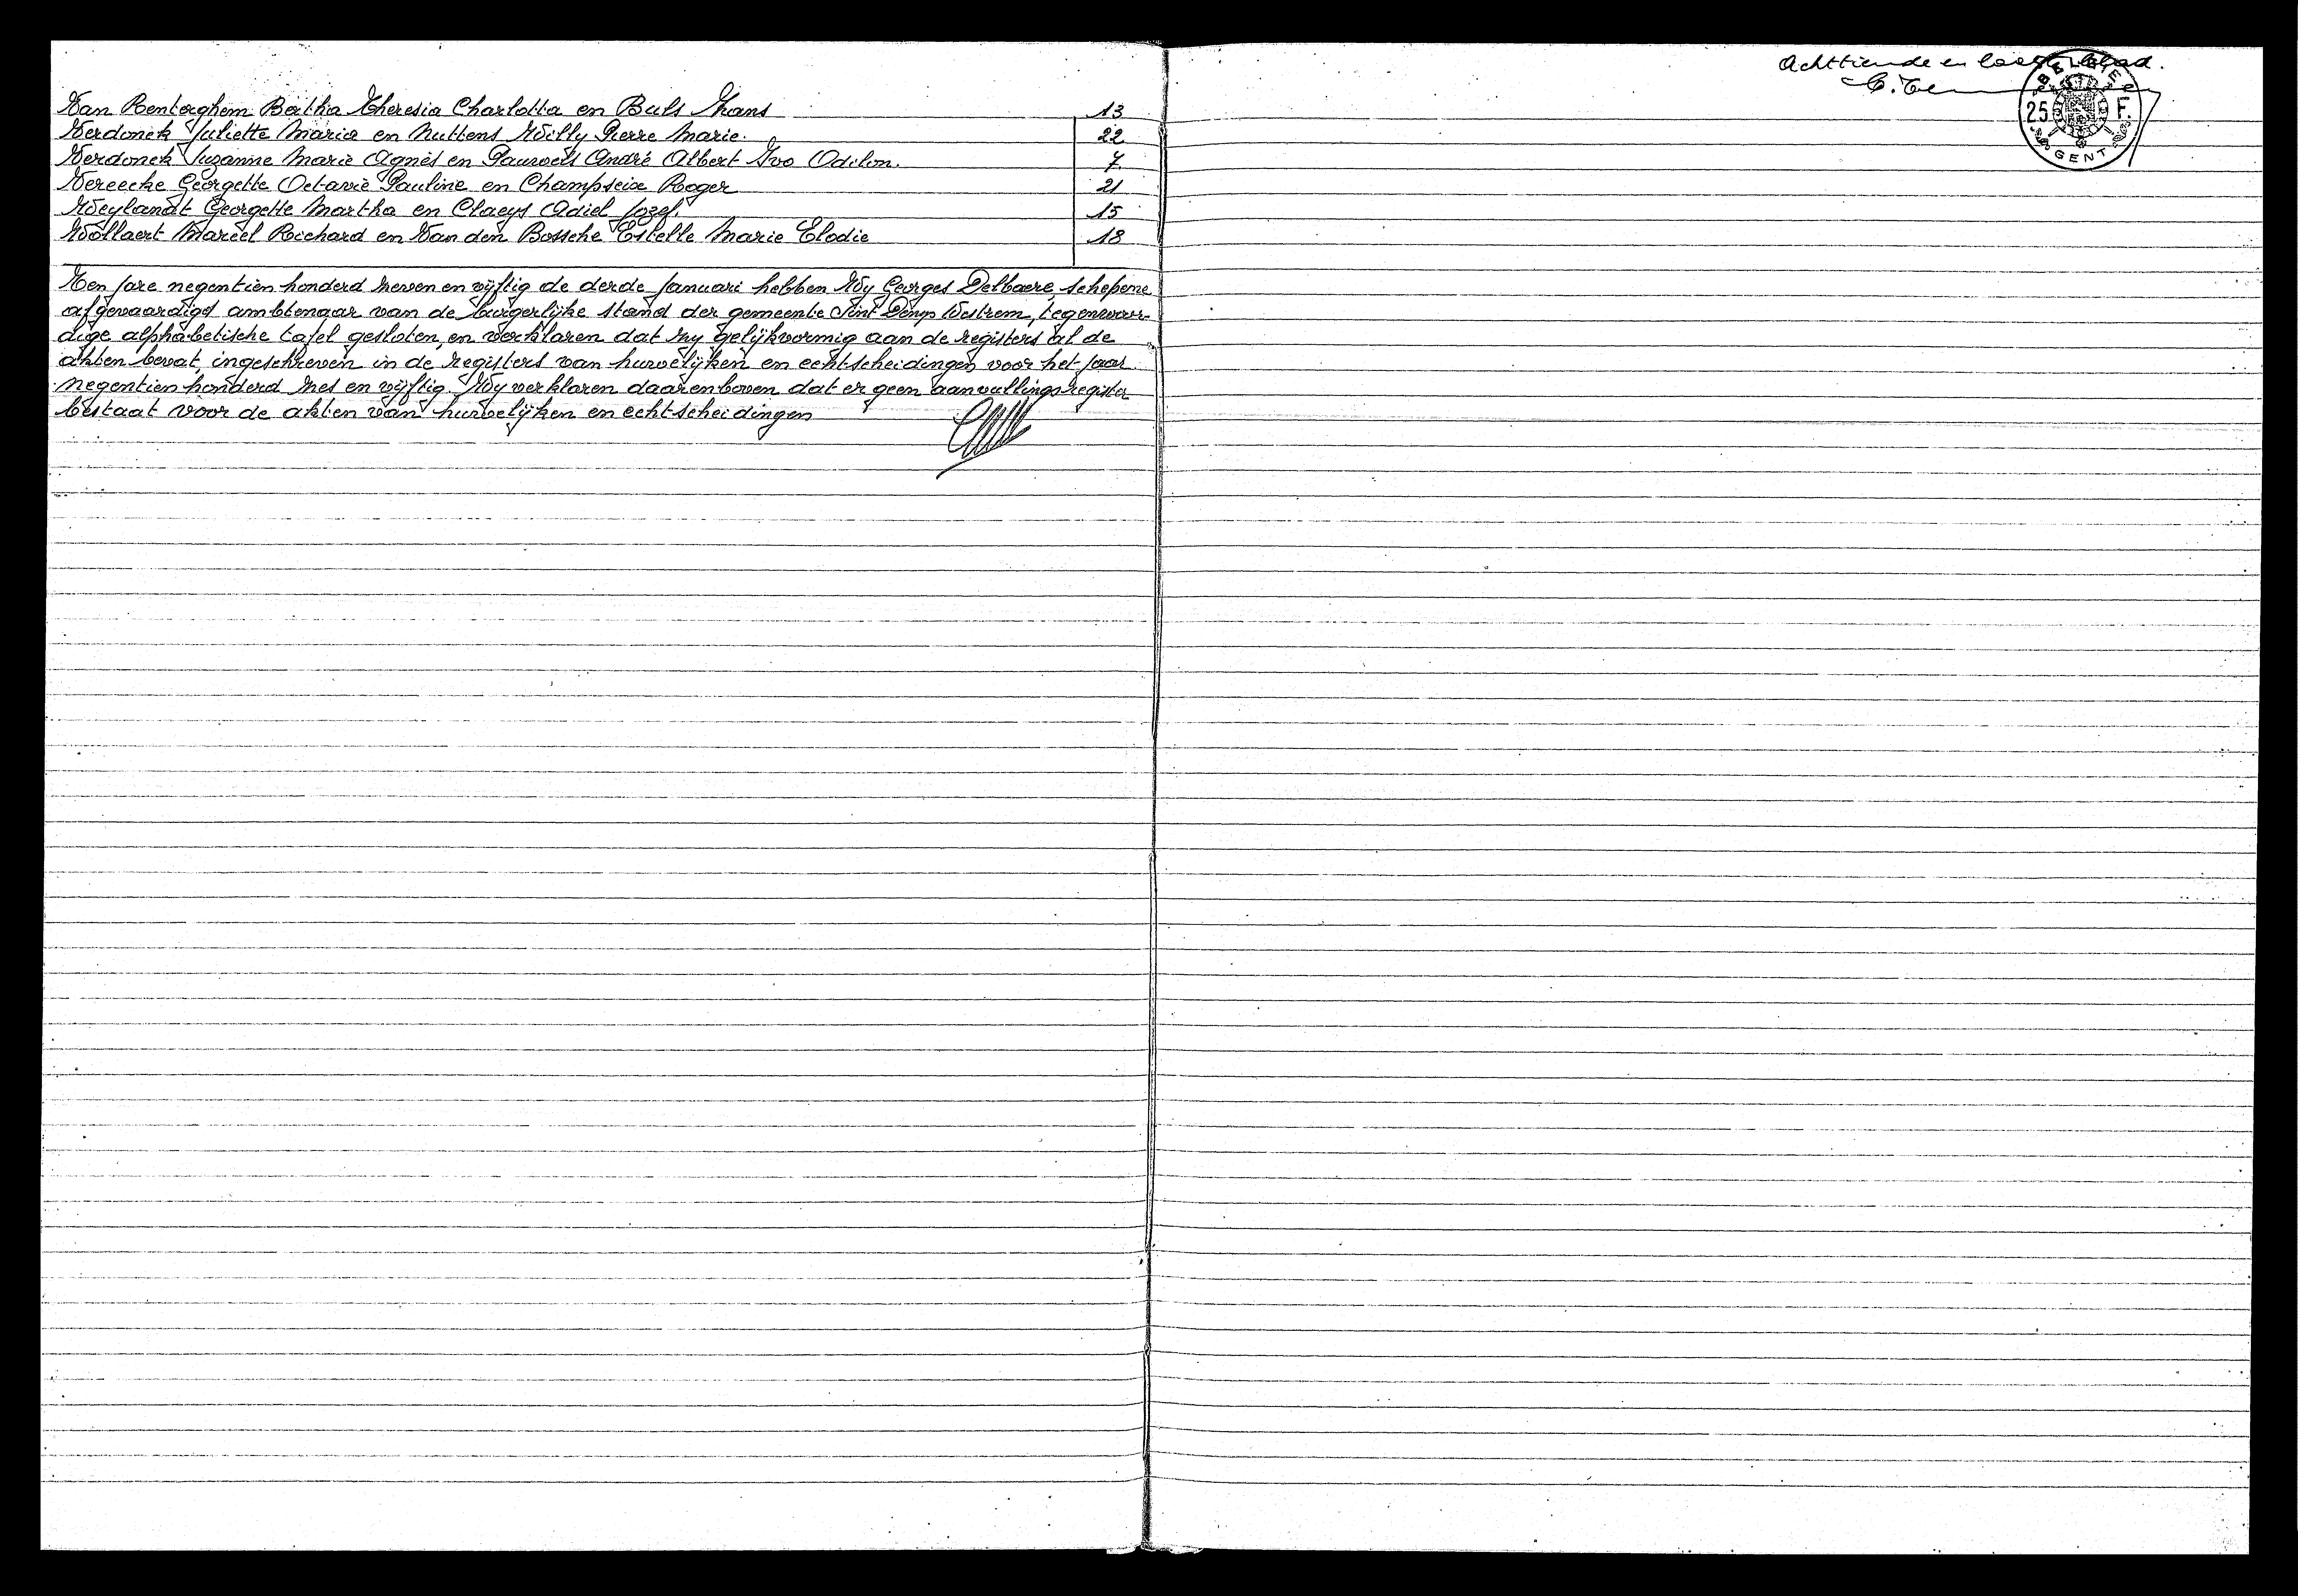 Van Renterghem Bertha Theresia Charlotta en Buls Frans 13
Verdonck Juliette Maria en Nuttens Willy Pierre Marie. 22
Verdonck Suzanne Marie Agnès en Pauwels André Albert Ivo Odilon. 7
Vereecke Georgette Octavie Pauline en Champseix Roger 21
Weylandt Georgette Martha en Claeys Adiel Jozef. 15
Wollaert Marcel Richard en Van den Bossche Estelle Marie Elodie 18
Ten jare negentien honderd zeven en vijftig de derde Januari hebben Wy Georges Delbaere, schepene
afgevaardigd ambtenaar van de burgerlijke stand der gemeente Sint Denys Westrem, tegenwoor-
dige alphabetische tafel gesloten, en verklaren dat zy gelijkvormig aan de registers al de
akten bevat, ingeschreven in de registers van huwelijken en echtscheidingen voor het jaar
negentien honderd zes en vijftig. Wy verklaren daarenboven dat er geen aanvullingsregister
bestaat voor de akten van huwelijken en echtscheidingen
Achttiende en laatste blad.
BELGIE
25 F.
GENT